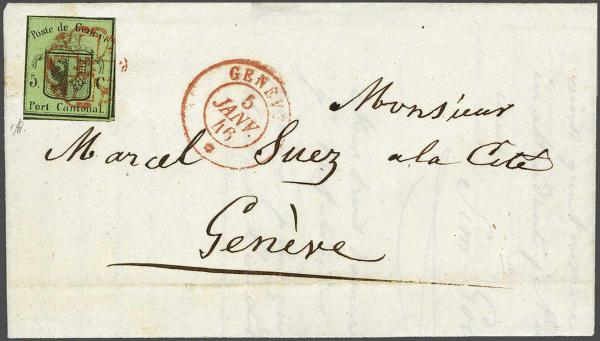 Poste de Genève
5. C.
Port Cantonal
GENÈVE
5
JANV.
46
Monsieur
Marcel Suez a la Cité
Genève